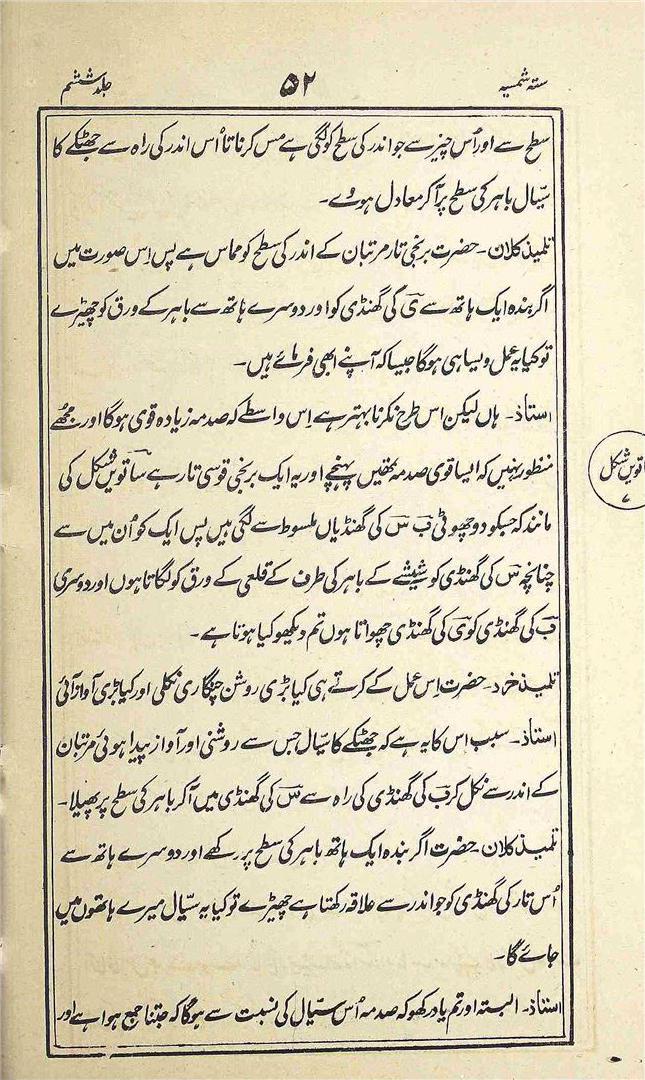 ستۂ شمسیہ
۵۲
جلد ششم
سطح سے اور اُس چیز سے جو اندر کی سطح کو لگی ہے مس کرنا تا اُس اندر کی راہ سے جھٹکے کا
سیّال باہر کی سطح پر آ کر معادل ہووے۔
تلمیذ کلان۔ حضرت برنجی تار مرتبان کے اندر کی سطح کو مماس ہے پس اِس صورت میں
اگر بندہ ایک ہاتھ سے یؔ کی گھنڈی کو اور دوسرے ہاتھ سے باہر کے ورق کو چھیڑے
تو کیا یہ عمل ویسا ہی ہوگا جیسا کہ آپنے ابھی فرمائے ہیں۔
استاذ۔ ہاں لیکن اس طرح نکرنا بہتر ہے اِس واسطے کہ صدمہ زیادہ قوی ہوگا اور مجھے
منظور نہیں کہ ایسا قوی صدمہ تمھیں پہنچے اور یہ ایک برنجی قوسی تار ہے ساتویں شکل کی
مانند کہ جسکو دو چھوٹی بؔ سؔ کی گھنڈیاں ملسوط سے لگی ہیں پس ایک کو اُن میں سے
چنانچہ سؔ کی گھنڈی کو شیشے کے باہر کی طرف کے قلعی کے ورق کو لگاتا ہوں اور دوسری
بؔ کی گھنڈی کو یؔ کی گھنڈی چھواتا ہوں تم دیکھو کیا ہوتا ہے۔
تلمیذ خرد۔ حضرت اِس عمل کے کرتے ہی کیا بڑی روشن چنگاری نکلی اور کیا بڑی آواز آئی
استاذ۔ سبب اس کا یہ ہے کہ جھٹکے کا سیّال جس سے روشنی اور آواز پیدا ہوئی مرتبان
کے اندر سے نکل کر بؔ کی گھنڈی کی راہ سے سؔ کی گھنڈی میں آ کر باہر کی سطح پر پھیلا۔
تلمیذ کلان۔ حضرت اگر بندہ ایک ہاتھ باہر کی سطح پر رکھے اور دوسرے ہاتھ سے
اُس تار کی گھنڈی کو جو اندر سے علاقہ رکھتا ہے چھیڑے تو کیا یہ سیّال میرے ہاتھوں میں
جائے گا۔
استاذ۔ البتہ اور تم یاد رکھو کہ صدمہ اُس سیّال کی نسبت سے ہوگا کہ جتنا جمع ہوا ہے اور
شکل
۷